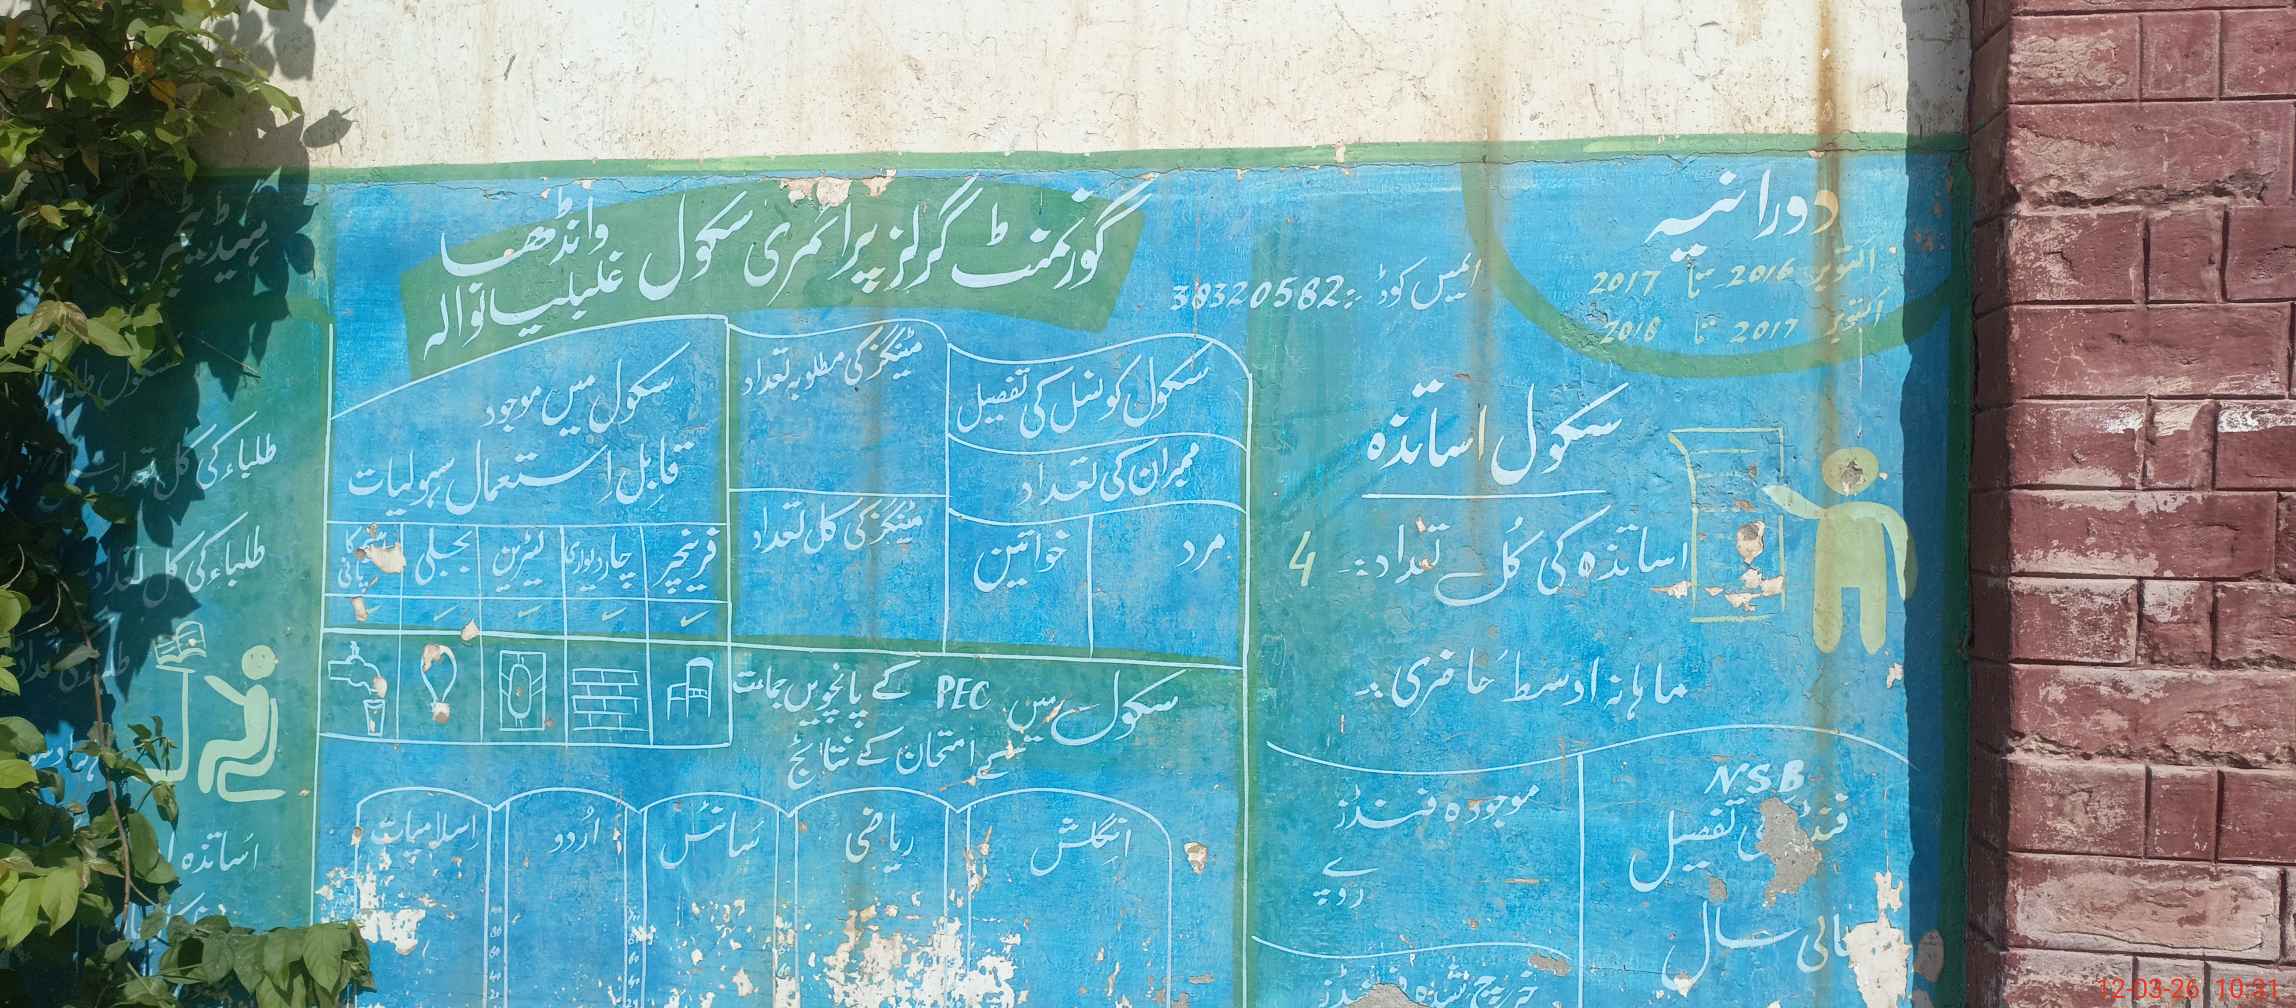 گورنمنٹ گرلز پرائمری سکول وانڈھا غلبلیانوالہ
ایمس کوڈ :- 38320582
دورانیہ
اکتوبر 2016 تا 2017
اکتوبر 2017 تا 2018
سکول میں موجود
قابلِ استعمال سہولیات
فرنیچر
چاردیواری
لیٹرین
بجلی
پانی
میٹنگز کی مطلوبہ تعداد
میٹنگز کی کل تعداد
سکول کونسل کی تفصیل
ممبران کی تعداد
مرد
خواتین
سکول میں PEC کے پانچویں جماعت
کے امتحان کے نتائج
انگلش
ریاضی
سائنس
اُردو
اسلامیات
سکول اساتذہ
اساتذہ کی کُل تعداد :- 4
ماہانہ اوسط حاضری :-
NSB
فنڈ کی تفصیل
مالی سال
موجودہ فنڈز
روپے
خرچ شدہ فنڈز
ہیڈ ٹیچر
طلباء کی کل تعداد
طلباء کی کل تعداد
اساتذہ
12-03-26 10:31